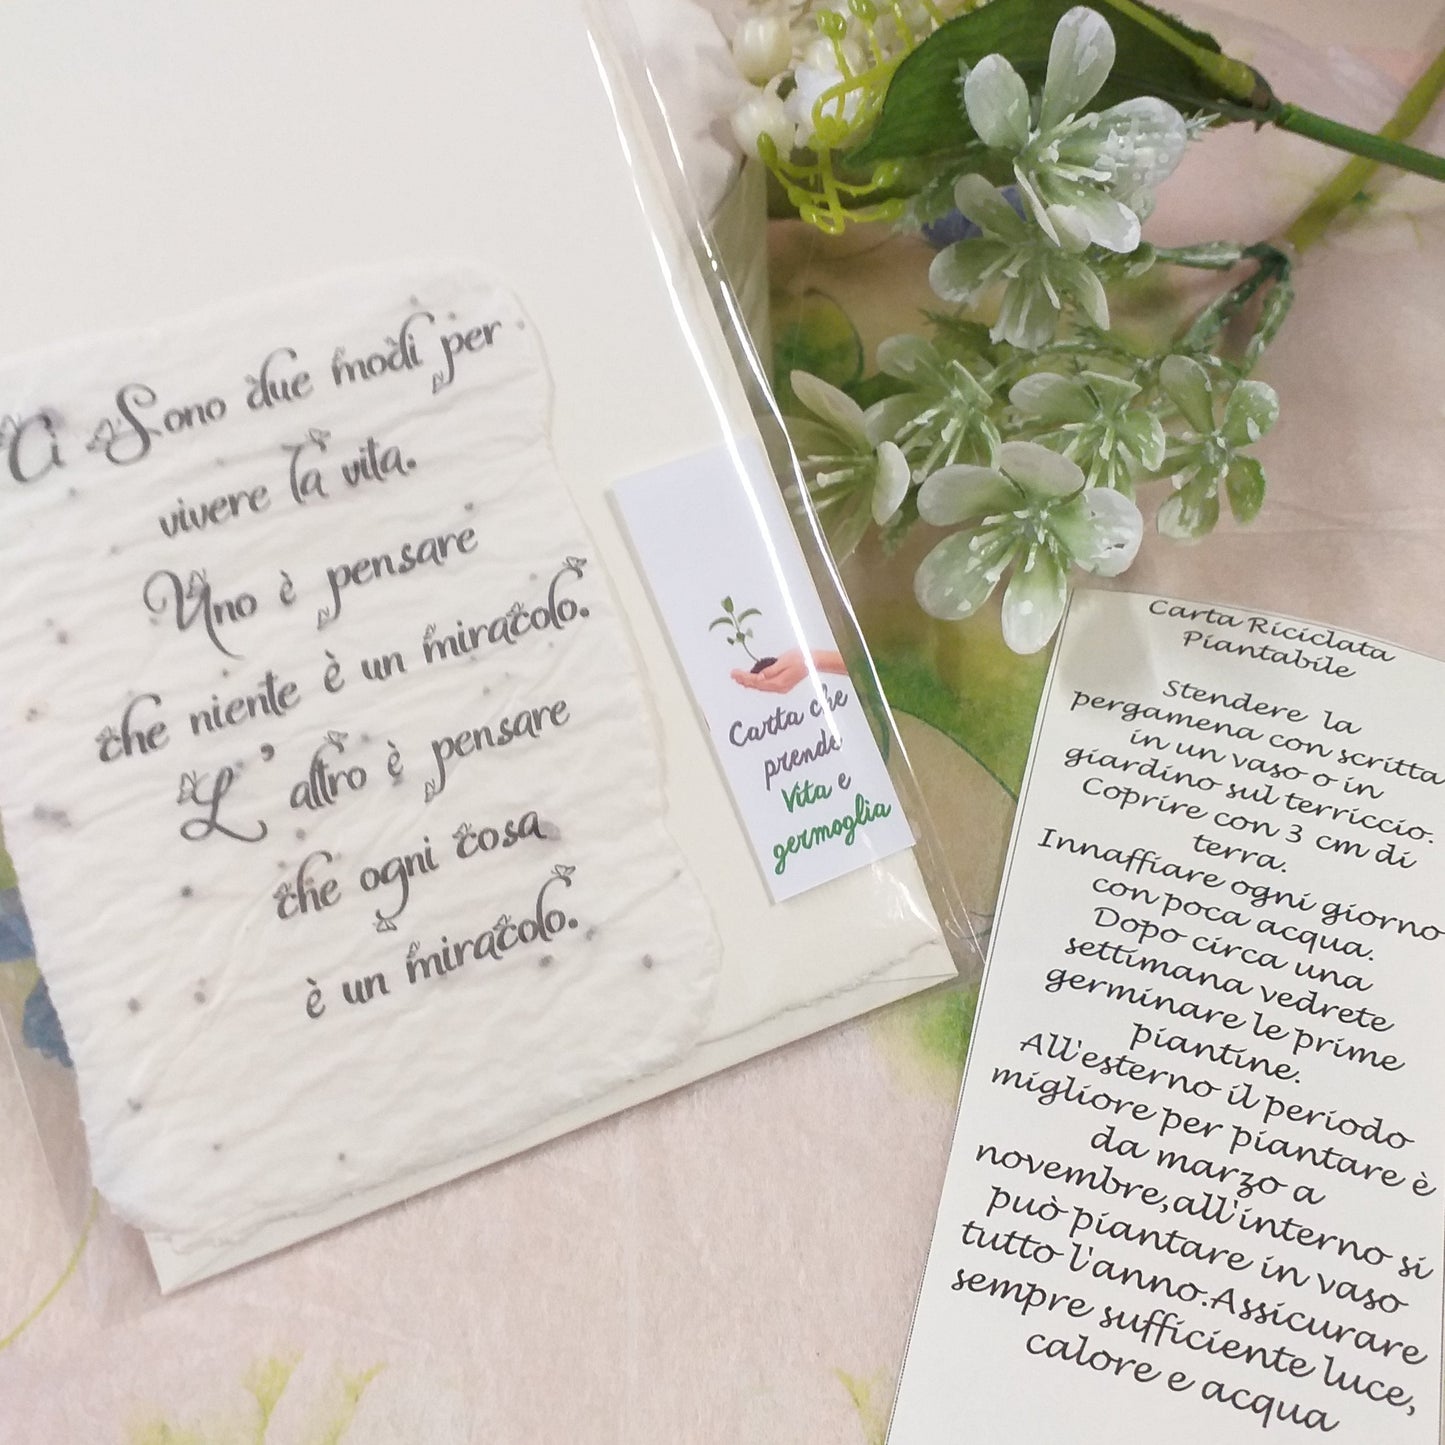 Ci Sono due modi per
vivere la vita.
Uno è pensare
che niente è un miracolo.
L'altro è pensare
che ogni cosa
è un miracolo.
Carta che
prende
Vita e
germoglia
Carta Riciclata
Piantabile
Stendere la
pergamena con scritta
in un vaso o in
giardino sul terriccio.
Coprire con 3 cm di
terra.
Innaffiare ogni giorno
con poca acqua.
Dopo circa una
settimana vedrete
germinare le prime
piantine.
All'esterno il periodo
migliore per piantare è
da marzo a
novembre,all'interno si
può piantare in vaso
tutto l'anno.Assicurare
sempre sufficiente luce,
calore e acqua